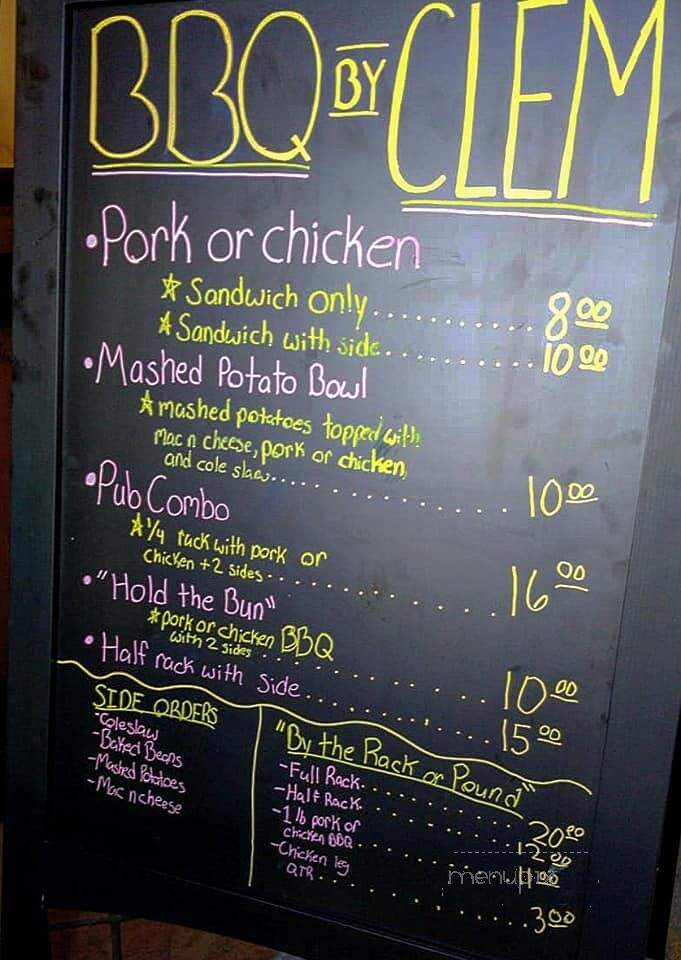 BBQ BY CLEM
•Pork or chicken
☆ Sandwich only............ 8.00
☆ Sandwich with side............ 10.00
•Mashed Potato Bowl
☆ mashed potatoes topped with
Mac n cheese, pork or chicken,
and cole slaw............ 10.00
•Pub Combo
☆ 1/4 rack with pork or
chicken + 2 sides............ 16.00
•"Hold the Bun"
☆ pork or chicken BBQ
with 2 sides............ 10.00
•Half rack with side............ 15.00
SIDE ORDERS
-Coleslaw
-Baked Beans
-Mashed Potatoes
-Mac n cheese
"By the Rack or Pound"
-Full Rack............ 20.00
-Half Rack............ 12.00
-1 lb pork or
chicken BBQ............
-Chicken leg
QTR............ 3.00